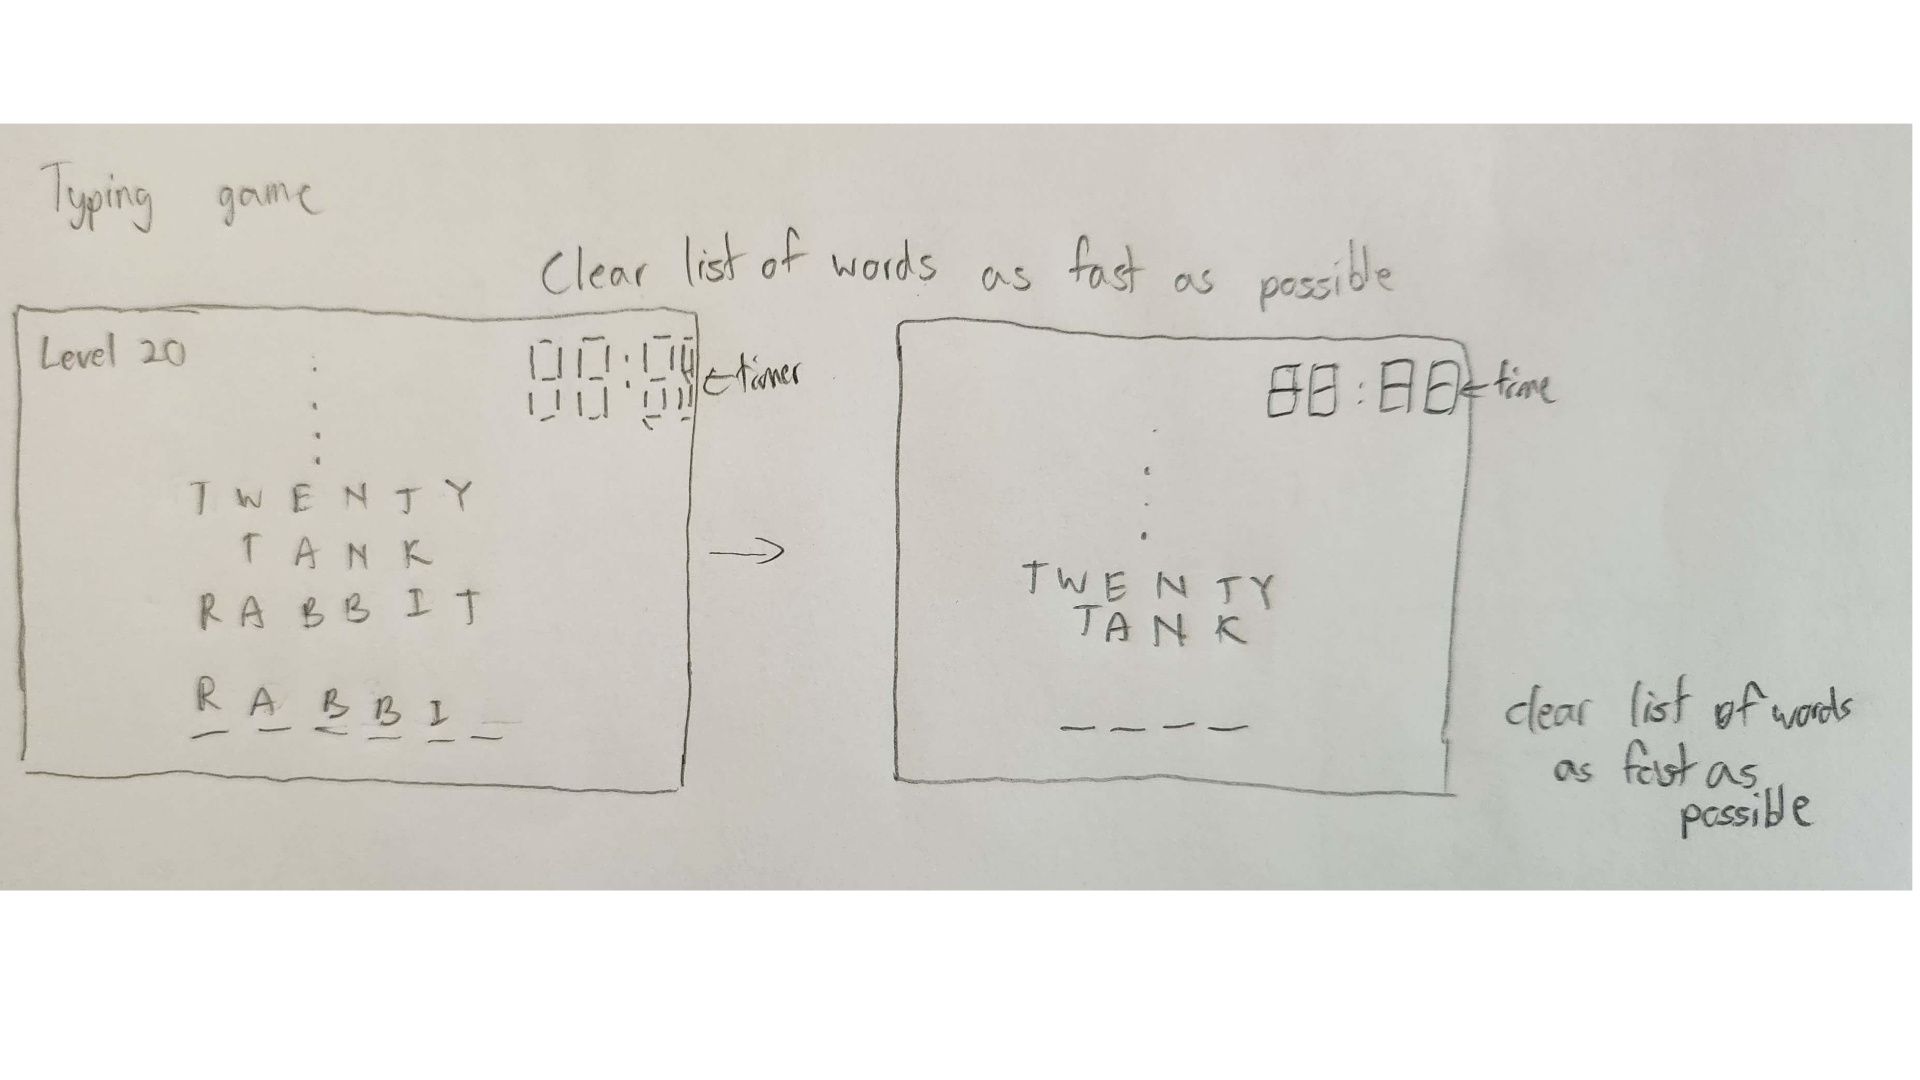 Typing game
Clear list of words as fast as possible
Level 20
← timer
T W E N T Y
T A N K
R A B B I T
R A B B I _
→
88:88 ← time
T W E N T Y
T A N K
_ _ _ _
clear list of words
as fast as
possible